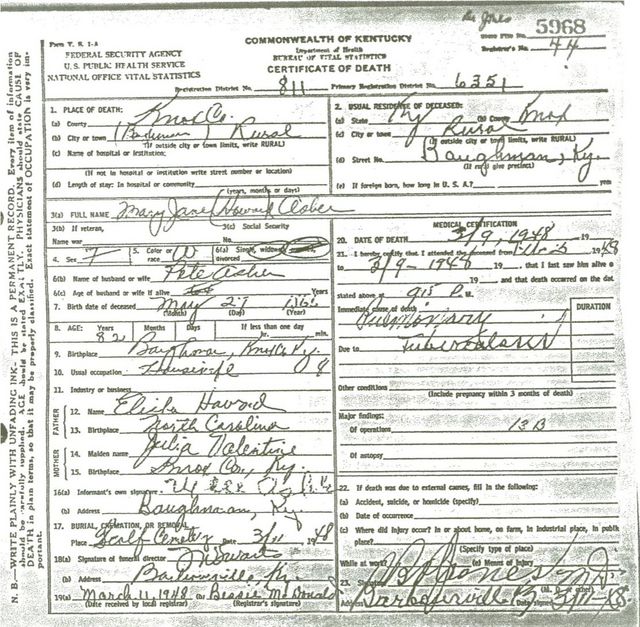 5968
Form V. S. 1-A
COMMONWEALTH OF KENTUCKY
State File No.
FEDERAL SECURITY AGENCY
Department of Health
Registrar's No. 44
U. S. PUBLIC HEALTH SERVICE
BUREAU OF VITAL STATISTICS
NATIONAL OFFICE VITAL STATISTICS
CERTIFICATE OF DEATH
Registration District No. 811 Primary Registration District No. 6351
N. B.—WRITE PLAINLY WITH UNFADING INK—THIS IS A PERMANENT RECORD. Every item of information
should be carefully supplied. AGE should be stated EXACTLY. PHYSICIANS should state CAUSE OF
DEATH in plain terms, so that it may be properly classified. Exact statement of OCCUPATION is very important.
1. PLACE OF DEATH:
(a) County Knox Co.
(b) City or town Rural
(If outside city or town limits, write RURAL)
(c) Name of hospital or institution:
(If not in hospital or institution write street number or location)
(d) Length of stay: In hospital or community
(years, months or days)
2. USUAL RESIDENCE OF DECEASED:
(a) State Ky (b) County Knox
(c) City or town Rural
(If outside city or town limits, write RURAL)
(d) Street No. Baughman, Ky.
(If rural give precinct)
(e) If foreign born, how long in U. S. A.? years
3(a) FULL NAME Mary Jane Howard
3(b) If veteran,
Name war
3(c) Social Security
No.
4. Sex F
5. Color or race W
6(a) Single, widowed, divorced
6(b) Name of husband or wife Pete Asher
6(c) Age of husband or wife if alive Years
7. Birth date of deceased May 27
(Month) (Day) (Year)
8. AGE: Years Months Days If less than one day
82 hr. min.
9. Birthplace Knox Co. Ky.
10. Usual occupation Housewife
11. Industry or business
FATHER
12. Name Elisha Howard
13. Birthplace North Carolina
MOTHER
14. Maiden name Julia Valentine
15. Birthplace Knox Co., Ky.
16(a) Informant's own signature
(b) Address Baughman, Ky.
17. BURIAL, CREMATION, OR REMOVAL
Place Scalf Cemetery Date 3/11 1948
18(a) Signature of funeral director
(b) Address Barbourville, Ky
19(a) March 11, 1948 (b) Bessie McDonald
(Date received by local registrar) (Registrar's signature)
MEDICAL CERTIFICATION
20. DATE OF DEATH 3/9, 1948 19
21. I hereby certify that I attended the deceased from 1948
to 3/9-1948, 19, that I last saw him alive
on 19 and that death occurred on the date
stated above at 915 P. M.
Immediate cause of death DURATION
Pulmonary
Due to Tuberculosis
Other conditions
(Include pregnancy within 3 months of death)
Major findings:
Of operations 13B
Of autopsy
22. If death was due to external causes, fill in the following:
(a) Accident, suicide, or homicide (specify)
(b) Date of occurrence
(c) Where did injury occur? In or about home, on farm, in industrial place, in public
place?
(Specify type of place)
While at work? (e) Means of Injury
23. Signature Jones
(M. D. or other)
Address Barbourville Ky. Date signed 3/11/48